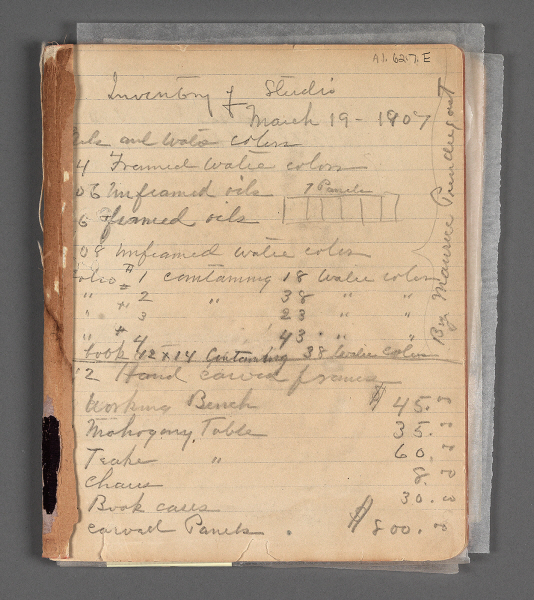 A1. 62.7. E
Inventory of Studio
March 19 - 1907
and water colors
4 Framed water colors
06 Unframed oils
7 Panels
6 framed oils
08 Unframed water colors
Folio #1 containing 18 water colors
" " 2 " 38 " "
" " 3 23 " "
" " 4 43 " "
Book 12 x 14 Containing 38 Water colors
By Maurice Prendergast
2 Hand carved frames
Working Bench $ 45.
Mahogany Table 35.
Teake " 60.
Chairs 8.
Book cases 30.
Carved Panels. $ 800.